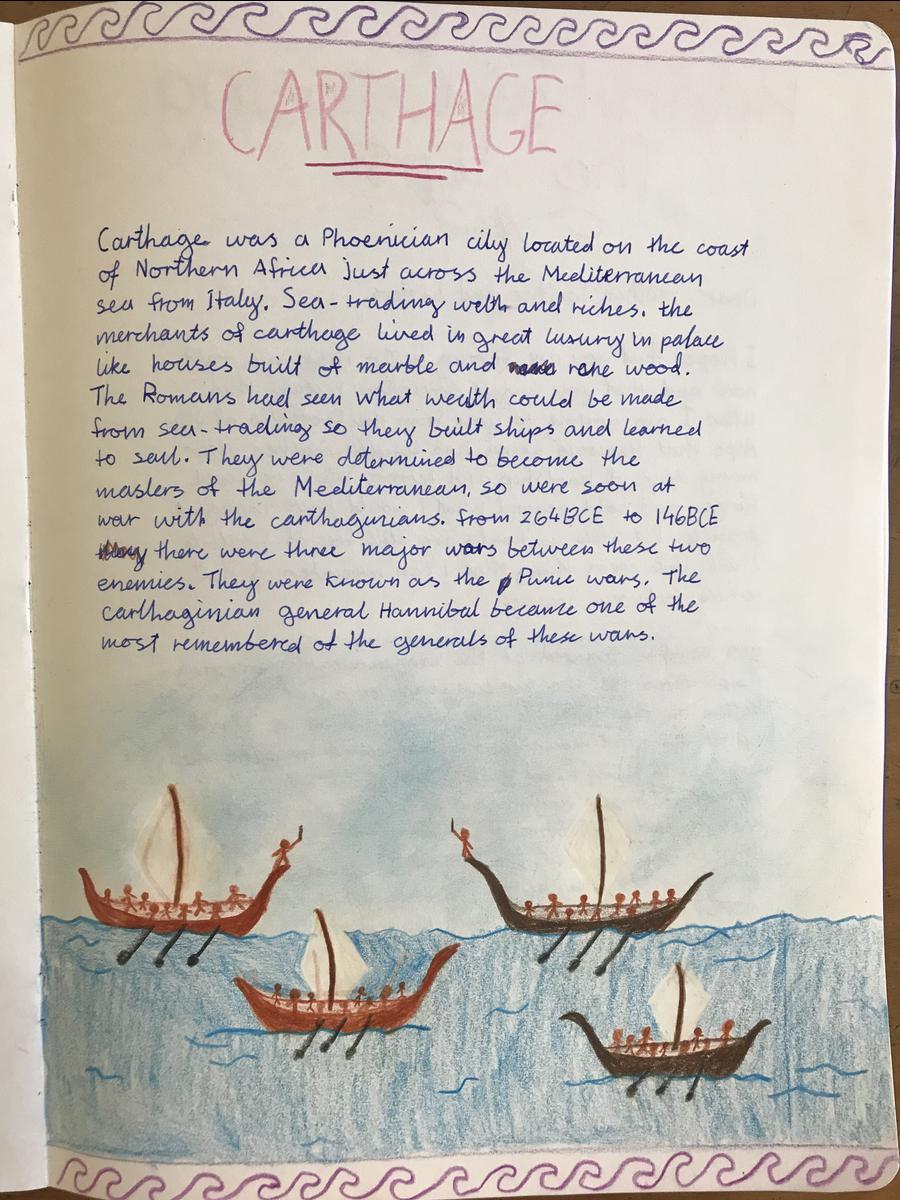 CARTHAGE
Carthage was a Phoenician city located on the coast
of Northern Africa just across the Mediterranean
sea from Italy. Sea-trading welth and riches. the
merchants of carthage lived in great luxury in palace
like houses built of marble and rare wood.
The Romans had seen what wealth could be made
from sea-trading so they built ships and learned
to sail. They were determined to become the
masters of the Mediterranean, so were soon at
war with the carthaginians. from 264BCE to 146BCE
there were three major wars between these two
enemies. They were known as the Punic wars. The
carthaginian general Hannibal became one of the
most remembered of the generals of these wars.